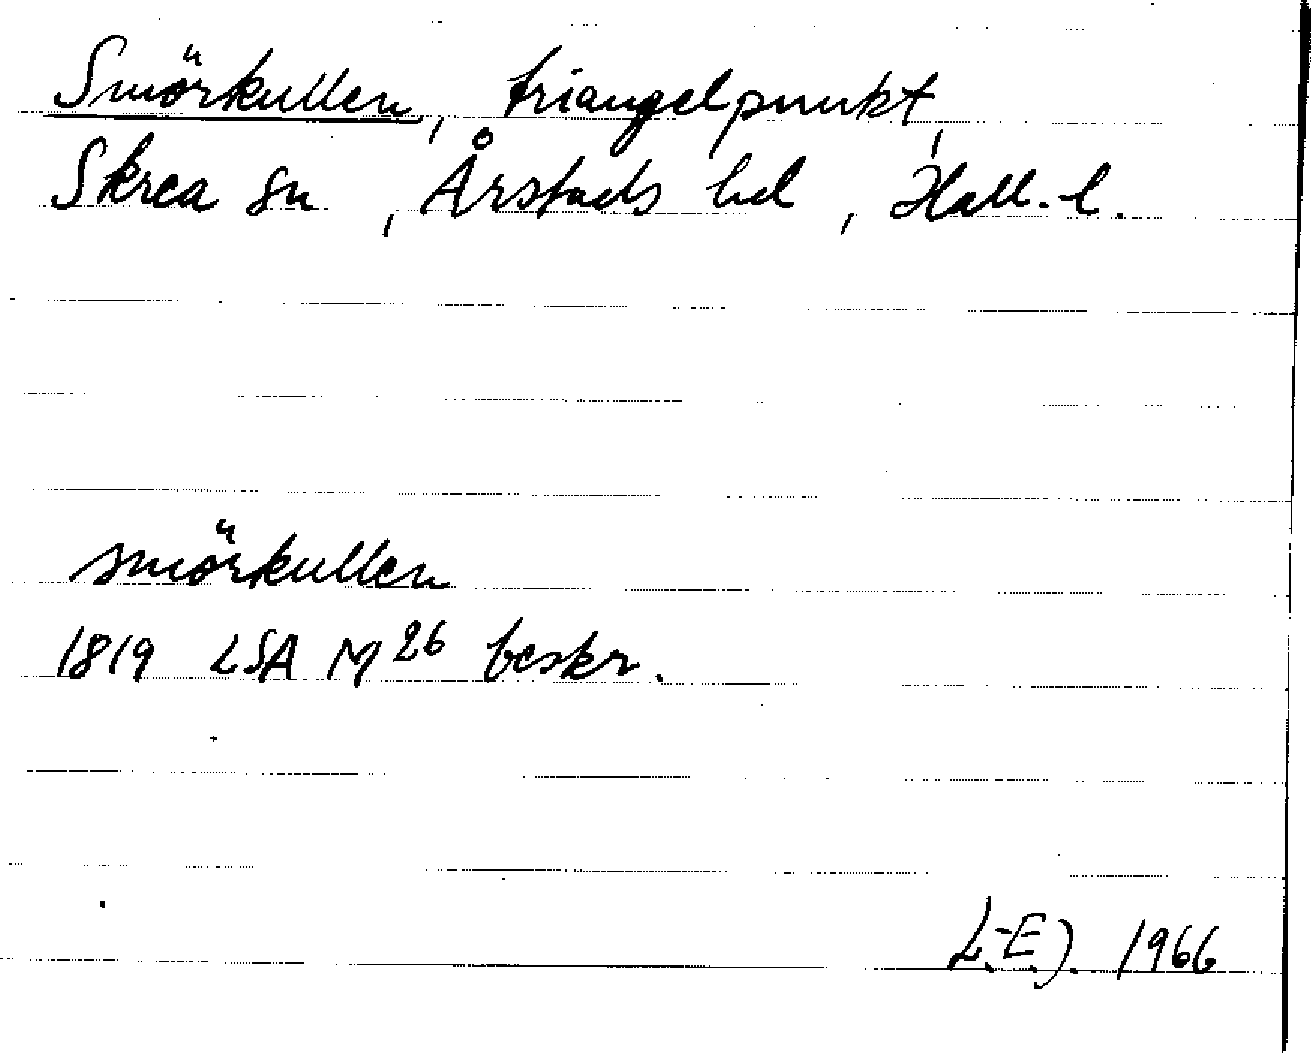 Smörkullen, triangelpunkt,
Skrea sn, Årstads hd, Hall. l.
smörkullen
1819 LSA M 26 beskr.
L.-E.J. 1966